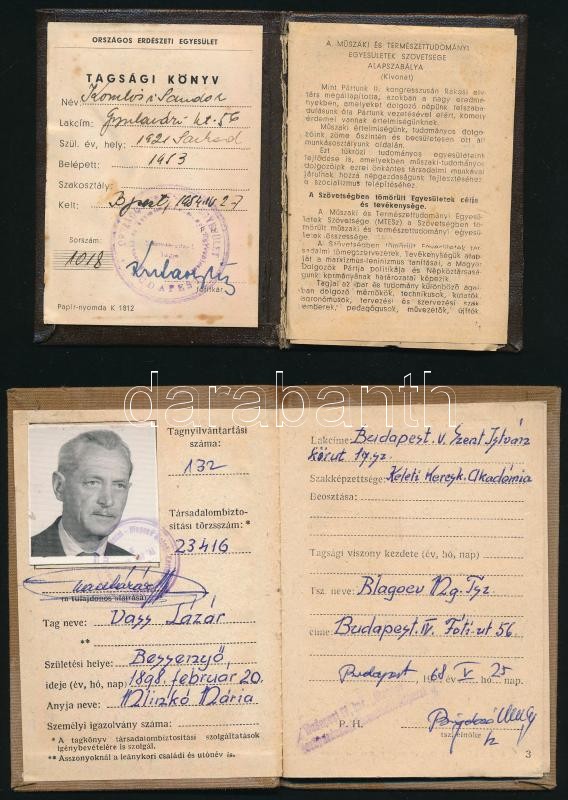 ORSZÁGOS ERDÉSZETI EGYESÜLET
TAGSÁGI KÖNYV
Név: Komlósi Sándor
Lakcím: Gyulavári út. 56
Szül. év, hely: 1921 Sarkad
Belépett: 1953
Szakosztály:
Kelt: Bpest, 1954
Sorszám:
1018
főtitkár
Papír-nyomda K 1812
A MŰSZAKI ÉS TERMÉSZETTUDOMÁNYI
EGYESÜLETEK SZÖVETSÉGE
ALAPSZABÁLYA
(Kivonat)
Mint Pártunk II. kongresszusán Rákosi elv-
társ megállapította, azokban a nagy eredmé-
nyekben, amelyeket dolgozó népünk felszaba-
dulásunk óta Pártunk vezetésével elért, komoly
érdemei vannak értelmiségünknek.
Műszaki értelmiségünk, tudományos dolgo-
zóink zöme őszintén és becsületesen ott áll
munkásosztályunk oldalán.
Ezt tükrözi tudományos egyesületeink
fejlődése is, amelyekben műszaki-tudományos
dolgozóink ezrei önkéntes társadalmi munkával
járulnak hozzá népgazdaságunk fejlesztéséhez
a szocializmus felépítéséhez.
A Szövetségben tömörült Egyesületek célja
és tevékenysége.
A Műszaki és Természettudományi Egyesü-
letek Szövetsége (MTESz) a Szövetségben tö-
mörült műszaki és természettudományi egyesü-
letek összessége.
A Szövetségben tömörült Egyesületek tár-
sadalmi tömegszervezetek. Tevékenységük alap-
ját a marxizmus-leninizmus tanításai, a Magyar
Dolgozók Pártja politikája és Népköztársasá-
gunk kormányának határozatai képezik.
Tagjai az ipar és tudomány különböző ágai-
ban dolgozó mérnökök, technikusok, kutatók,
agronómusok, tervezési és szervezési szak-
emberek, pedagógusok, művezetők, újítók
darabanth
Tagnyilvántartási
száma:
132
Társadalombizto-
sítási törzsszám: *
23416
(a tulajdonos aláírása)
Tag neve: Vass Lázár
**
Születési helye: Bessenyő,
ideje (év, hó, nap) 1898. február 20.
Anyja neve: Minkó Mária
Személyi igazolvány száma:
* A tagkönyv társadalombiztosítási szolgáltatások
igénybevételére is szolgál.
** Asszonyoknál a leánykori családi és utónév is.
Lakcíme: Budapest. V. Szent István
körut 17. sz.
Szakképzettsége: Keleti Keresk. Akadémia
Beosztása:
Tagsági viszony kezdete (év, hó, nap)
Tsz. neve: Blagoev Mg. Tsz.
címe: Budapest. IV. Fóti-ut 56
Budapest 1968 év V hó 25 nap.
P. H.
tsz. elnöke
3